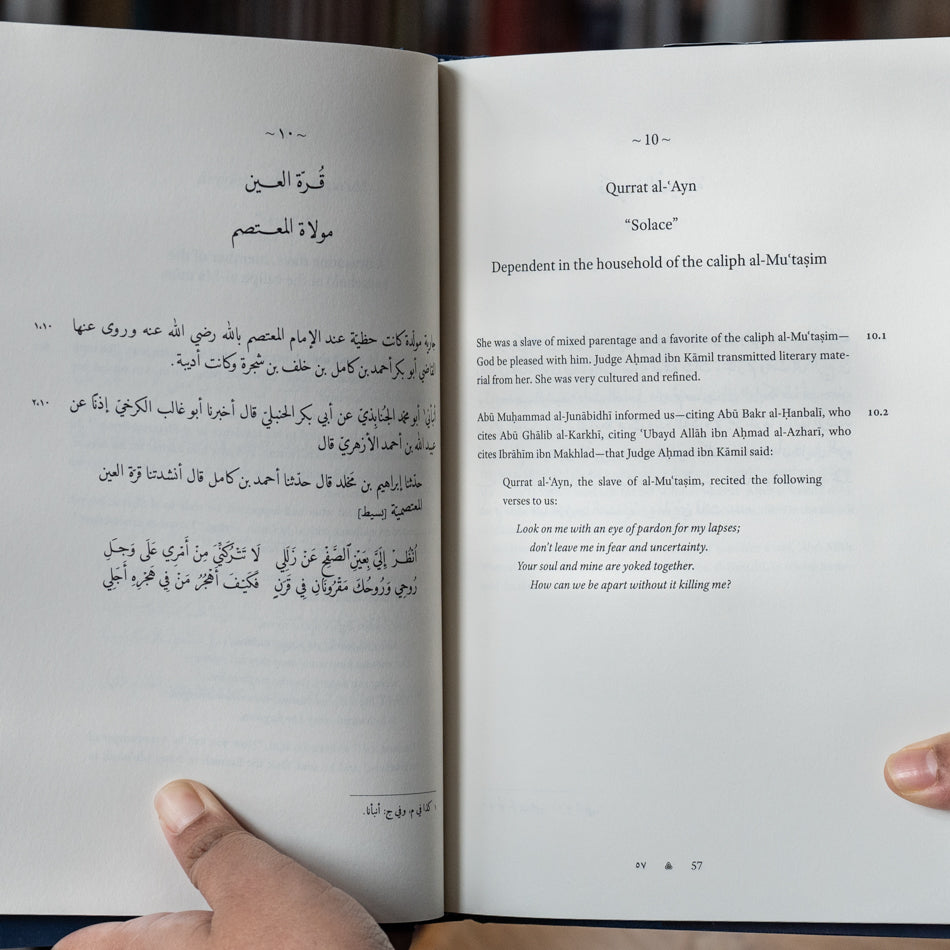 ~ ١٠ ~
قُرّة العين
مولاة المعتصم
١،١٠
جارية مولّدة كانت حظيّة عند الإمام المعتصم بالله رضي الله عنه وروى عنها
القاضي أبو بكر أحمد بن كامل بن خلف بن شجرة وكانت أديبة.
٢،١٠
أنبأني١ أبو محمّد الجُنابِذيّ عن أبي بكر الحنبليّ قال أخبرنا أبو غالب الكرخيّ إذنًا عن
عبيد الله بن أحمد الأزهريّ قال
حدّثنا إبراهيم بن مَخلد قال حدّثنا أحمد بن كامل قال أنشدتنا قرّة العين
المعتصميّة [بسيط]
اُنْظُرْ إِلَيَّ بِعَيْنِ ٱلصَّفْحِ عَنْ زَلَلِي لَا تَتْرُكَنِّيَ مِنْ أَمْرِي عَلَى وَجَلِ
رُوحِي وَرُوحُكَ مَقْرُونَانِ فِي قَرَنٍ فَكَيْفَ أَهْجُرُ مَنْ فِي هَجْرِهِ أَجَلِي
١ كذا في م، وفي ج: أنبأنا.
~ 10 ~
Qurrat al-ʿAyn
“Solace”
Dependent in the household of the caliph al-Muʿtaṣim
She was a slave of mixed parentage and a favorite of the caliph al-Muʿtaṣim—
10.1
God be pleased with him. Judge Aḥmad ibn Kāmil transmitted literary mate-
rial from her. She was very cultured and refined.
Abū Muḥammad al-Junābidhī informed us—citing Abū Bakr al-Ḥanbalī, who
10.2
cites Abū Ghālib al-Karkhī, citing ʿUbayd Allāh ibn Aḥmad al-Azharī, who
cites Ibrāhīm ibn Makhlad—that Judge Aḥmad ibn Kāmil said:
Qurrat al-ʿAyn, the slave of al-Muʿtaṣim, recited the following
verses to us:
Look on me with an eye of pardon for my lapses;
don’t leave me in fear and uncertainty.
Your soul and mine are yoked together.
How can we be apart without it killing me?
٥٧ 57